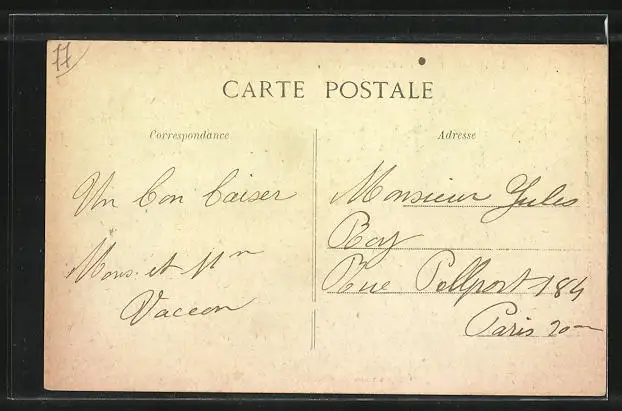 77
CARTE POSTALE
Correspondance
Un bon baiser
Mons. et Mm
Vaceon
Adresse
Monsieur Jules
Roy
Rue Pellport 184
Paris 20